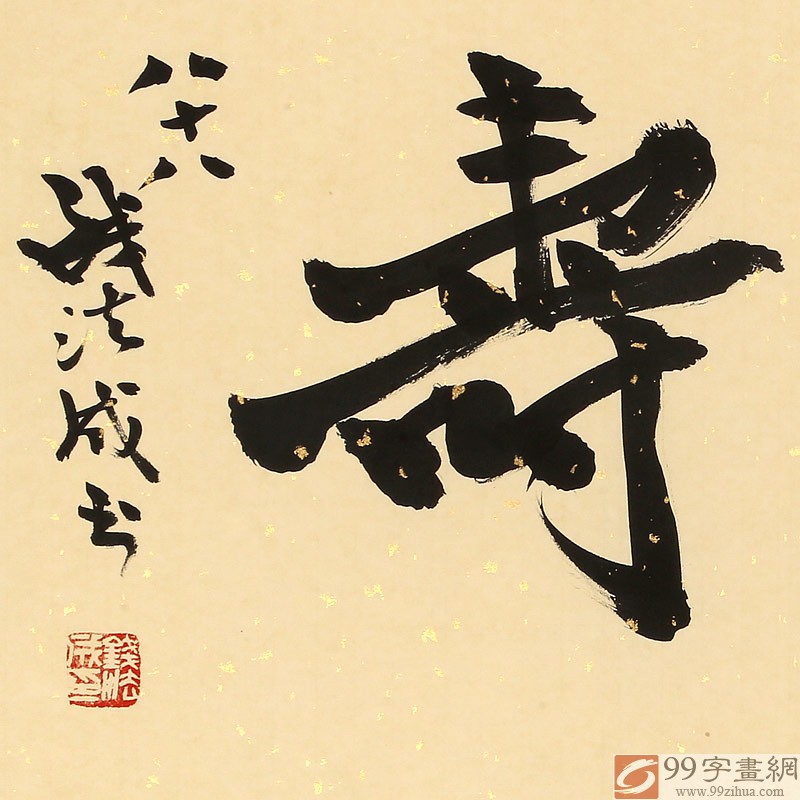 壽
八十八
钱法成书
錢法成印
99字畫網
www.99zihua.com